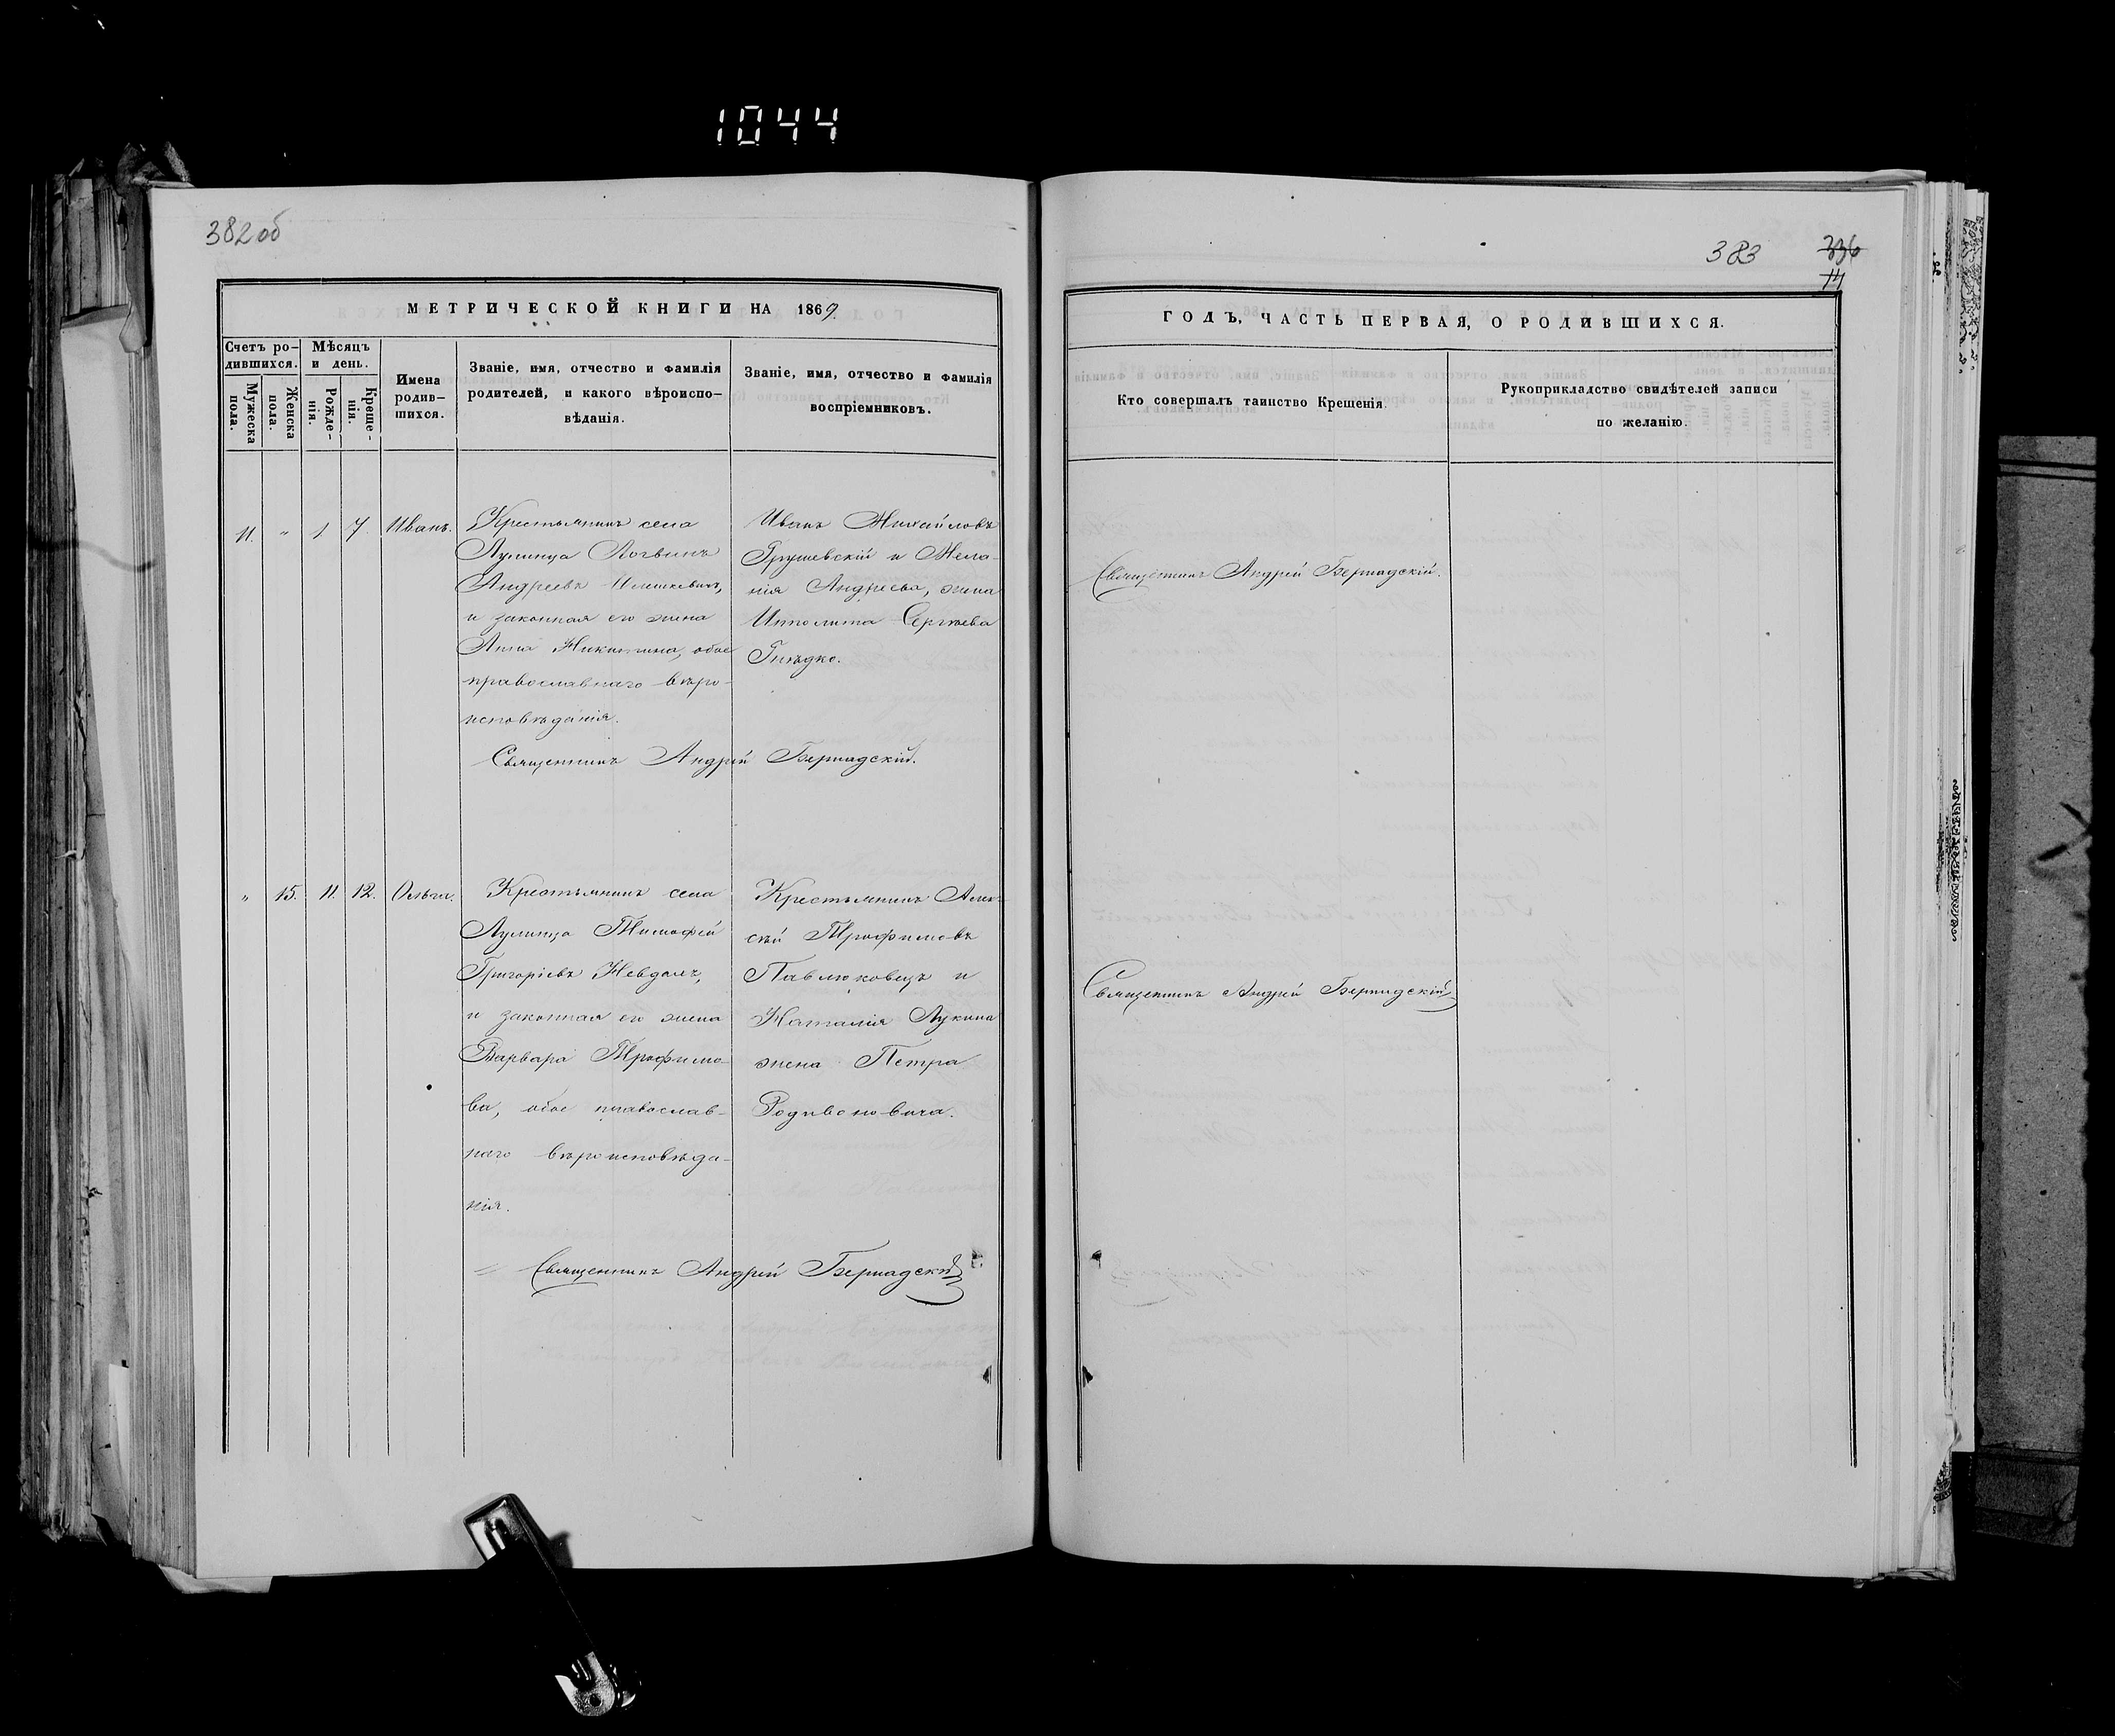 1044
382 об
МЕТРИЧЕСКОЙ КНИГИ НА 1869
Счетъ ро-
дившихся.
Мужеска
пола.
Женска
пола.
Мѣсяцъ
и день.
Рожде-
нія.
Креще-
нія.
Имена
родив-
шихся.
Званіе, имя, отчество и фамилія
родителей, и какого вѣроиспо-
вѣданія.
Званіе, имя, отчество и фамилія
воспріемниковъ.
11. " 1. 7. Иванъ.
Крестьянинъ села
Лулинца Логвинъ
Андреевъ
и законная его жена
Анна Никитина, обое
православнаго вѣро-
исповѣданія.
Иванъ Михайловъ
Грушевскій и Мела-
нія Андреева, жена
Ипполита Сергѣева
Гнѣдко.
Священникъ Андрей Бернадскій.
" 15. 11. 12. Ольга.
Крестьянинъ села
Лулинца Тимофей
Григоріевъ Невдахъ,
и законная его жена
Варвара Трофимо-
ва, обое православ-
наго вѣроисповѣда-
нія.
Крестьянинъ Алек-
сѣй Трофимовъ
Павлюковецъ и
Наталія Лукина
жена Петра
Родивоновича.
Священникъ Андрей Бернадскій
383 336
14
ГОДЪ, ЧАСТЬ ПЕРВАЯ, О РОДИВШИХСЯ.
Кто совершалъ таинство Крещенія.
Рукоприкладство свидѣтелей записи
по желанію.
Священникъ Андрей Бернадскій.
Священникъ Андрей Бернадскій